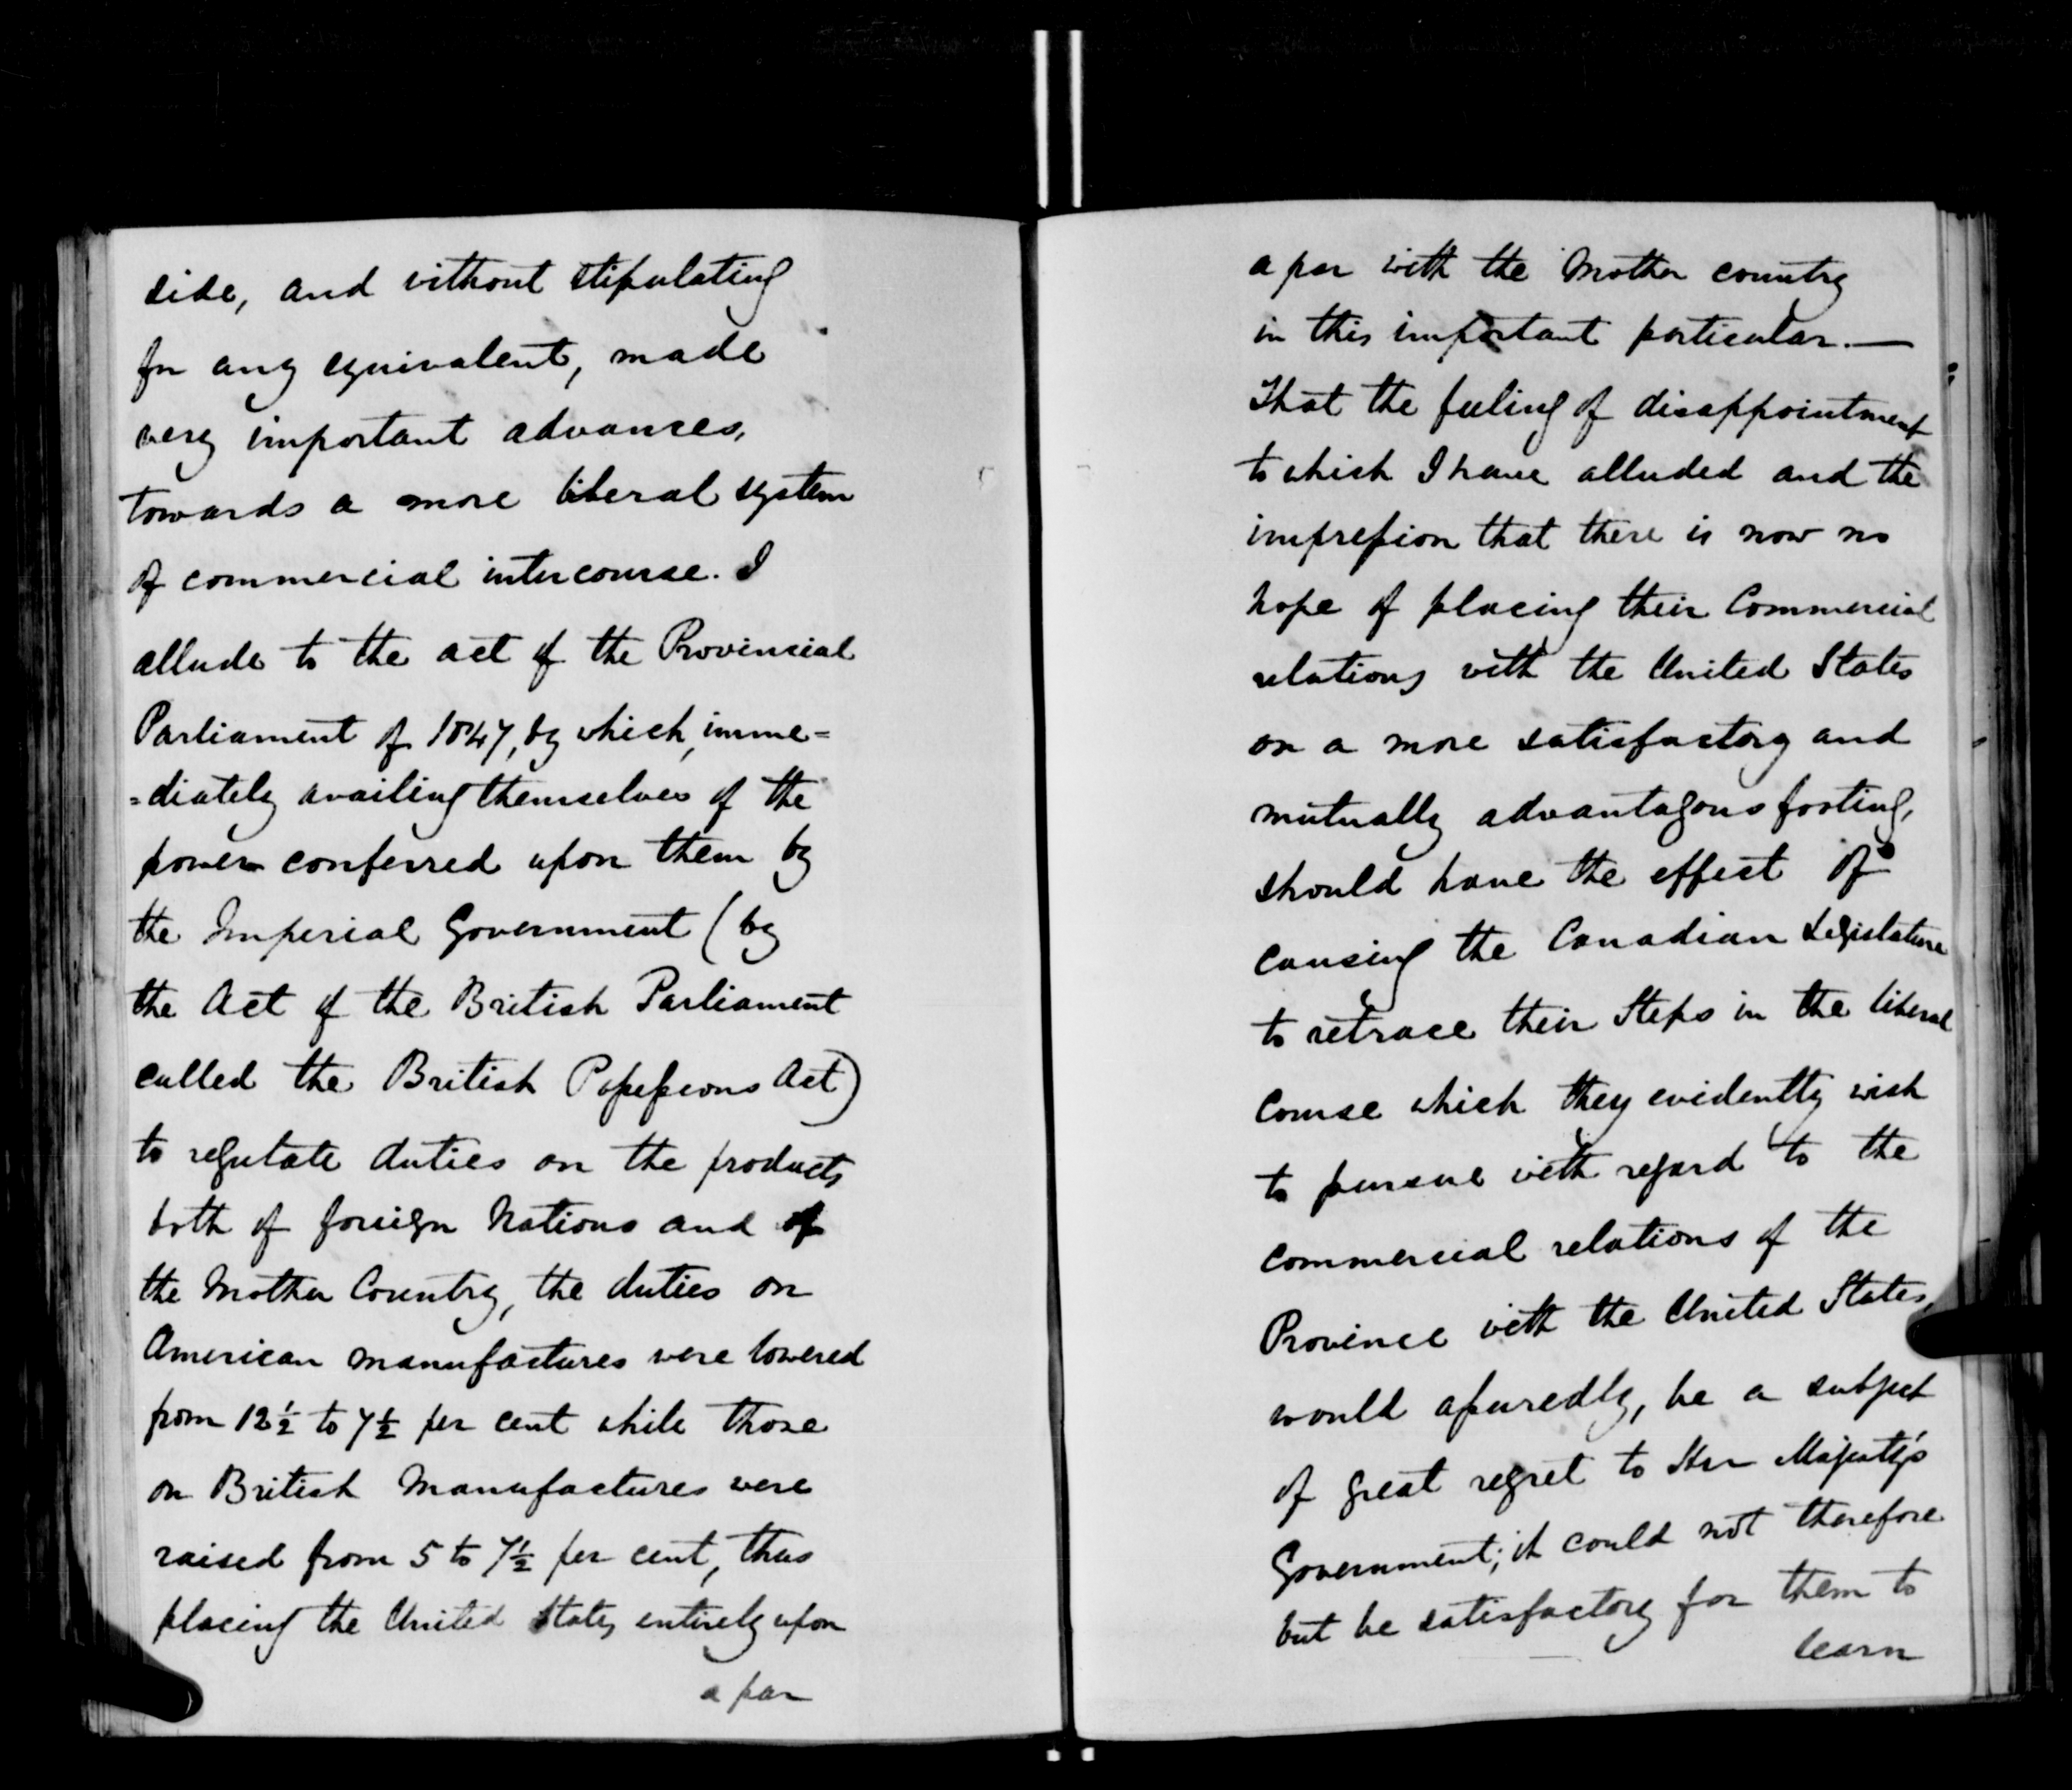 side, and without stipulating
for any equivalent, made
very important advances,
towards a more liberal system
of commercial intercourse. I
allude to the act of the Provincial
Parliament of 1847, by which, imme=
=diately availing themselves of the
power conferred upon them by
the Imperial Government (by
the Act of the British Parliament
called the British Possessions Act)
to regulate duties on the products
both of foreign Nations and of
the Mother Country, the duties on
American manufactures were lowered
from 12½ to 7½ per cent while those
on British Manufactures were
raised from 5 to 7½ per cent, thus
placing the United States entirely upon
a par
a par with the Mother country
in this important particular.—
That the feeling of disappointment
to which I have alluded and the
impression that there is now no
hope of placing their Commercial
relations with the United States
on a more satisfactory and
mutually advantagous footing,
should have the effect of
causing the Canadian Legislature
to retrace their Steps in the liberal
course which they evidently wish
to pursue with regard to the
commercial relations of the
Province with the United States,
would assuredly, be a subject
of great regret to Her Majesty's
Government; it could not therefore
but be satisfactory for them to
learn